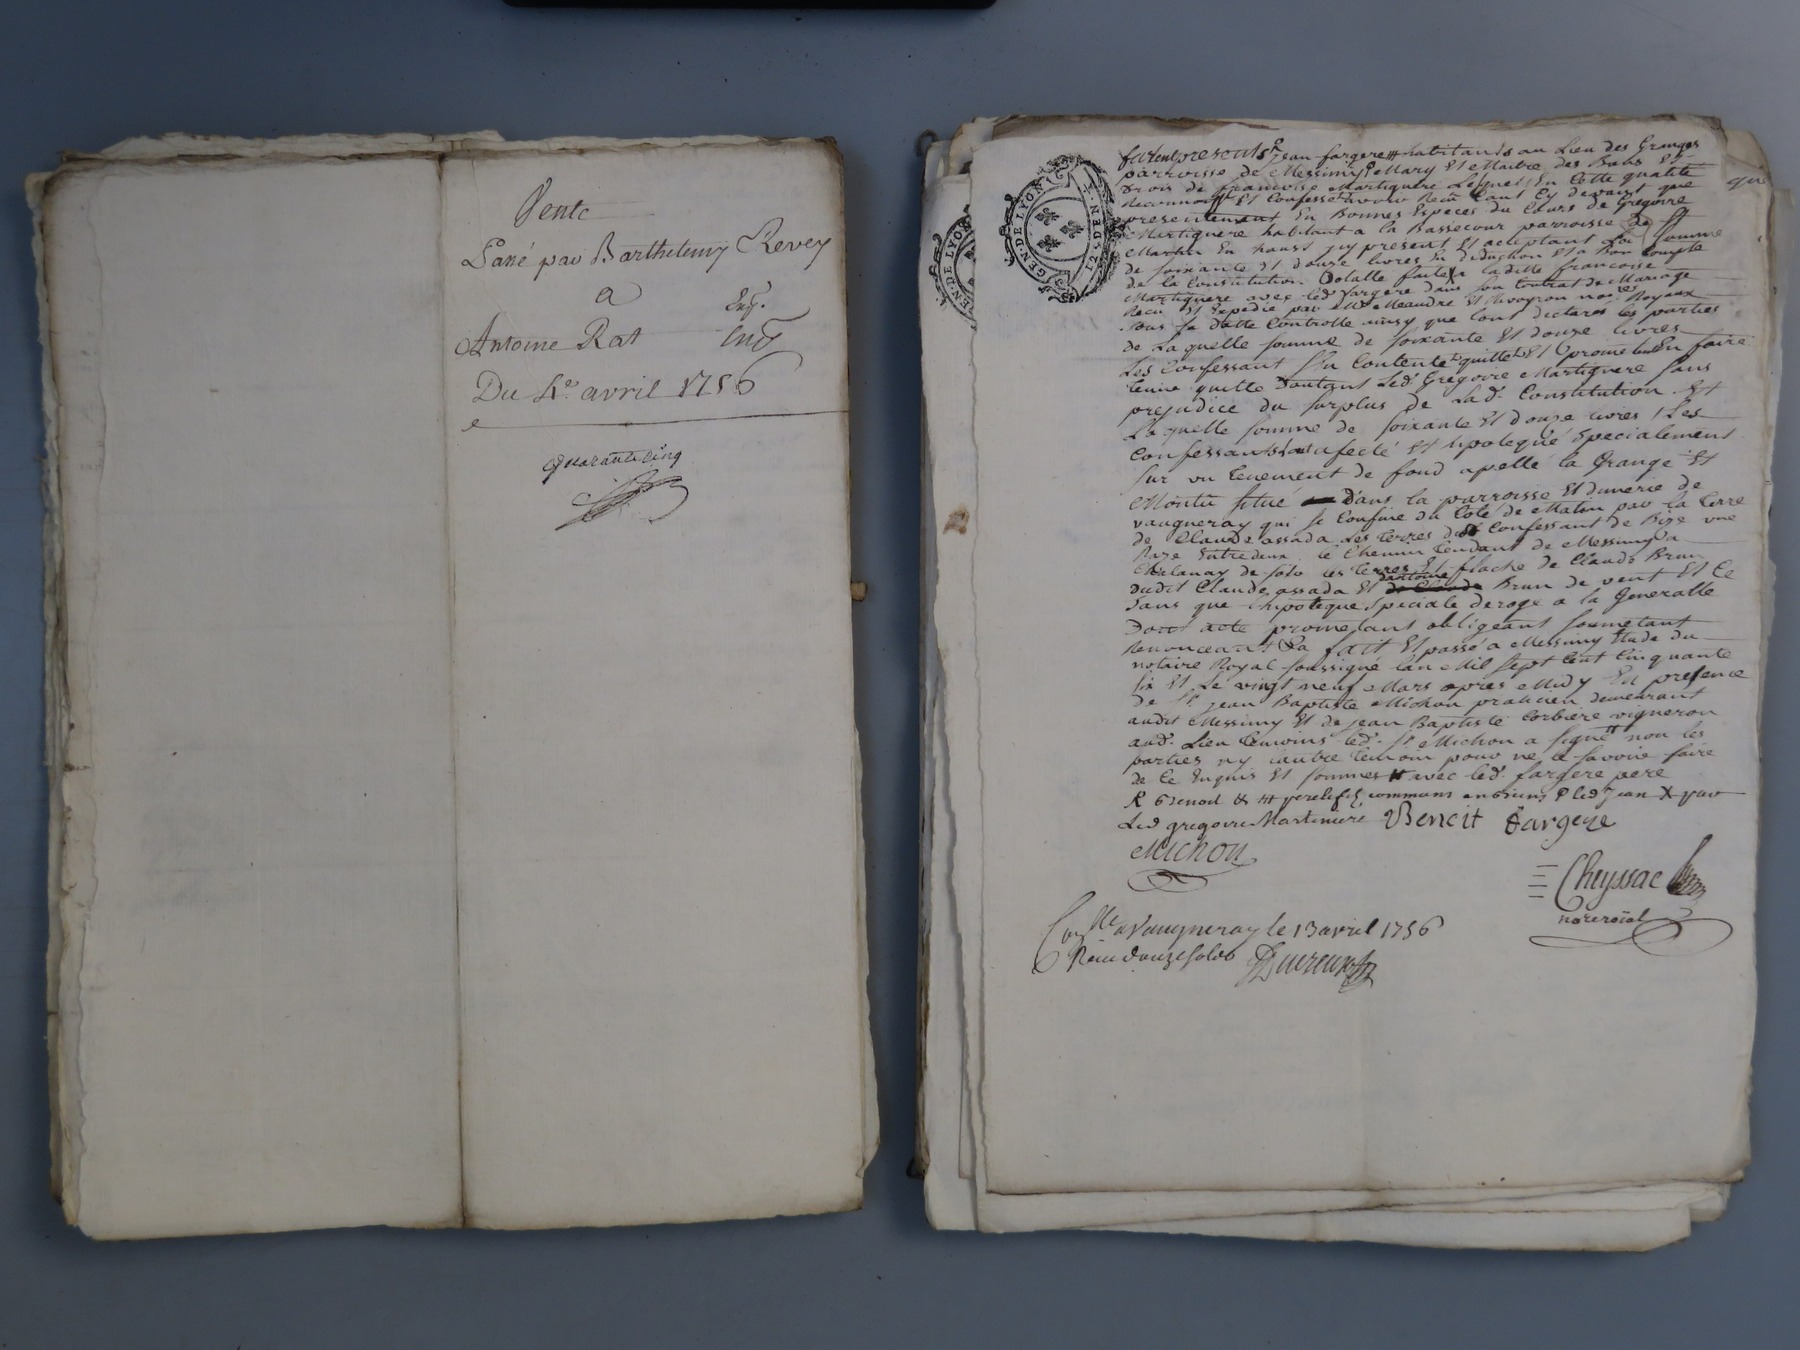 Vente
Passé par Barthelemy Revey
a
Exp.
Antoine Rat
Du 4e. avril 1756
quarante cinq
GEN. DE LYON
furent presents Jean fargere habitants au Lieu des Granges
parroisse de Messimy Mary Et Maitre des Biens Et
Drois de francoise Martiguere Lesquels En Cette qualité
Reconnoit Et Confesse avoir Recu tant Cy devant que
presentement En Bonnes Especes du Cours de Gregoire
Martiguere habitant a la Bassecour parroisse de St
Martin En haust icy present Et aceptant La Somme
de soixante Et douze livres En deduction Et a Bon Compte
de la Constitution Dotalle faite a ladite francoise
Martiguere avec led. fargere dans son Contrat de Mariage
Recu Et Expedié par Me Meandre Et nores Royaux
sous sa datte Controlle ainsy que l'ont declaré les parties
de Laquelle somme de soixante Et douze livres
Les Confessant s'En Contente quitte Et promettent En faire
tenir quitte Led. Gregoire Martiguere sans
prejudice du surplus de Lad. Constitution Et
Laquelle somme de soixante Et douze livres Les
Confessants ont afecté Et hipotequé specialement
sur un tenement de fond apellé la Grange Et
Situé dans la parroisse Et dimerie de
vaugneray qui se Confine du Coté de Matin par la terre
de Claude assada Les terres du Confessant de Bize une
Raze Entredeux le Chemin tendant de Messimy a
de soir les terres Et flache de Claude Brun
dudit Claude assada Et dantoine Brun de vent Et Ce
sans que Lhipoteque Speciale deroge a la Generalle
Dont acte prometant obligeant soumetant
Renonceant & Ca fait Et passé a Messimy Etude du
notaire Royal soussigné L'an Mil sept Cent Cinquante
six Et Le vingt neuf Mars apres Midy En presence
de Sr. Jean Baptiste Michon praticien demeurant
audit Messimy Et de Jean Baptiste Corbiere vigneron
aud. Lieu temoins led. Sr Michon a signé non les
parties ny l'autre temoin pour ne le savoir faire
de Ce Enquis Et sommes avec led. fargere pere
Benoit & pere et fils communs en biens led Jean X par
Led gregoire Martiniere Benoit Fargere
Michon
Cheyssac
nore roial
Conlle a Vaugneray le 13 avril 1756
Recu douze solds